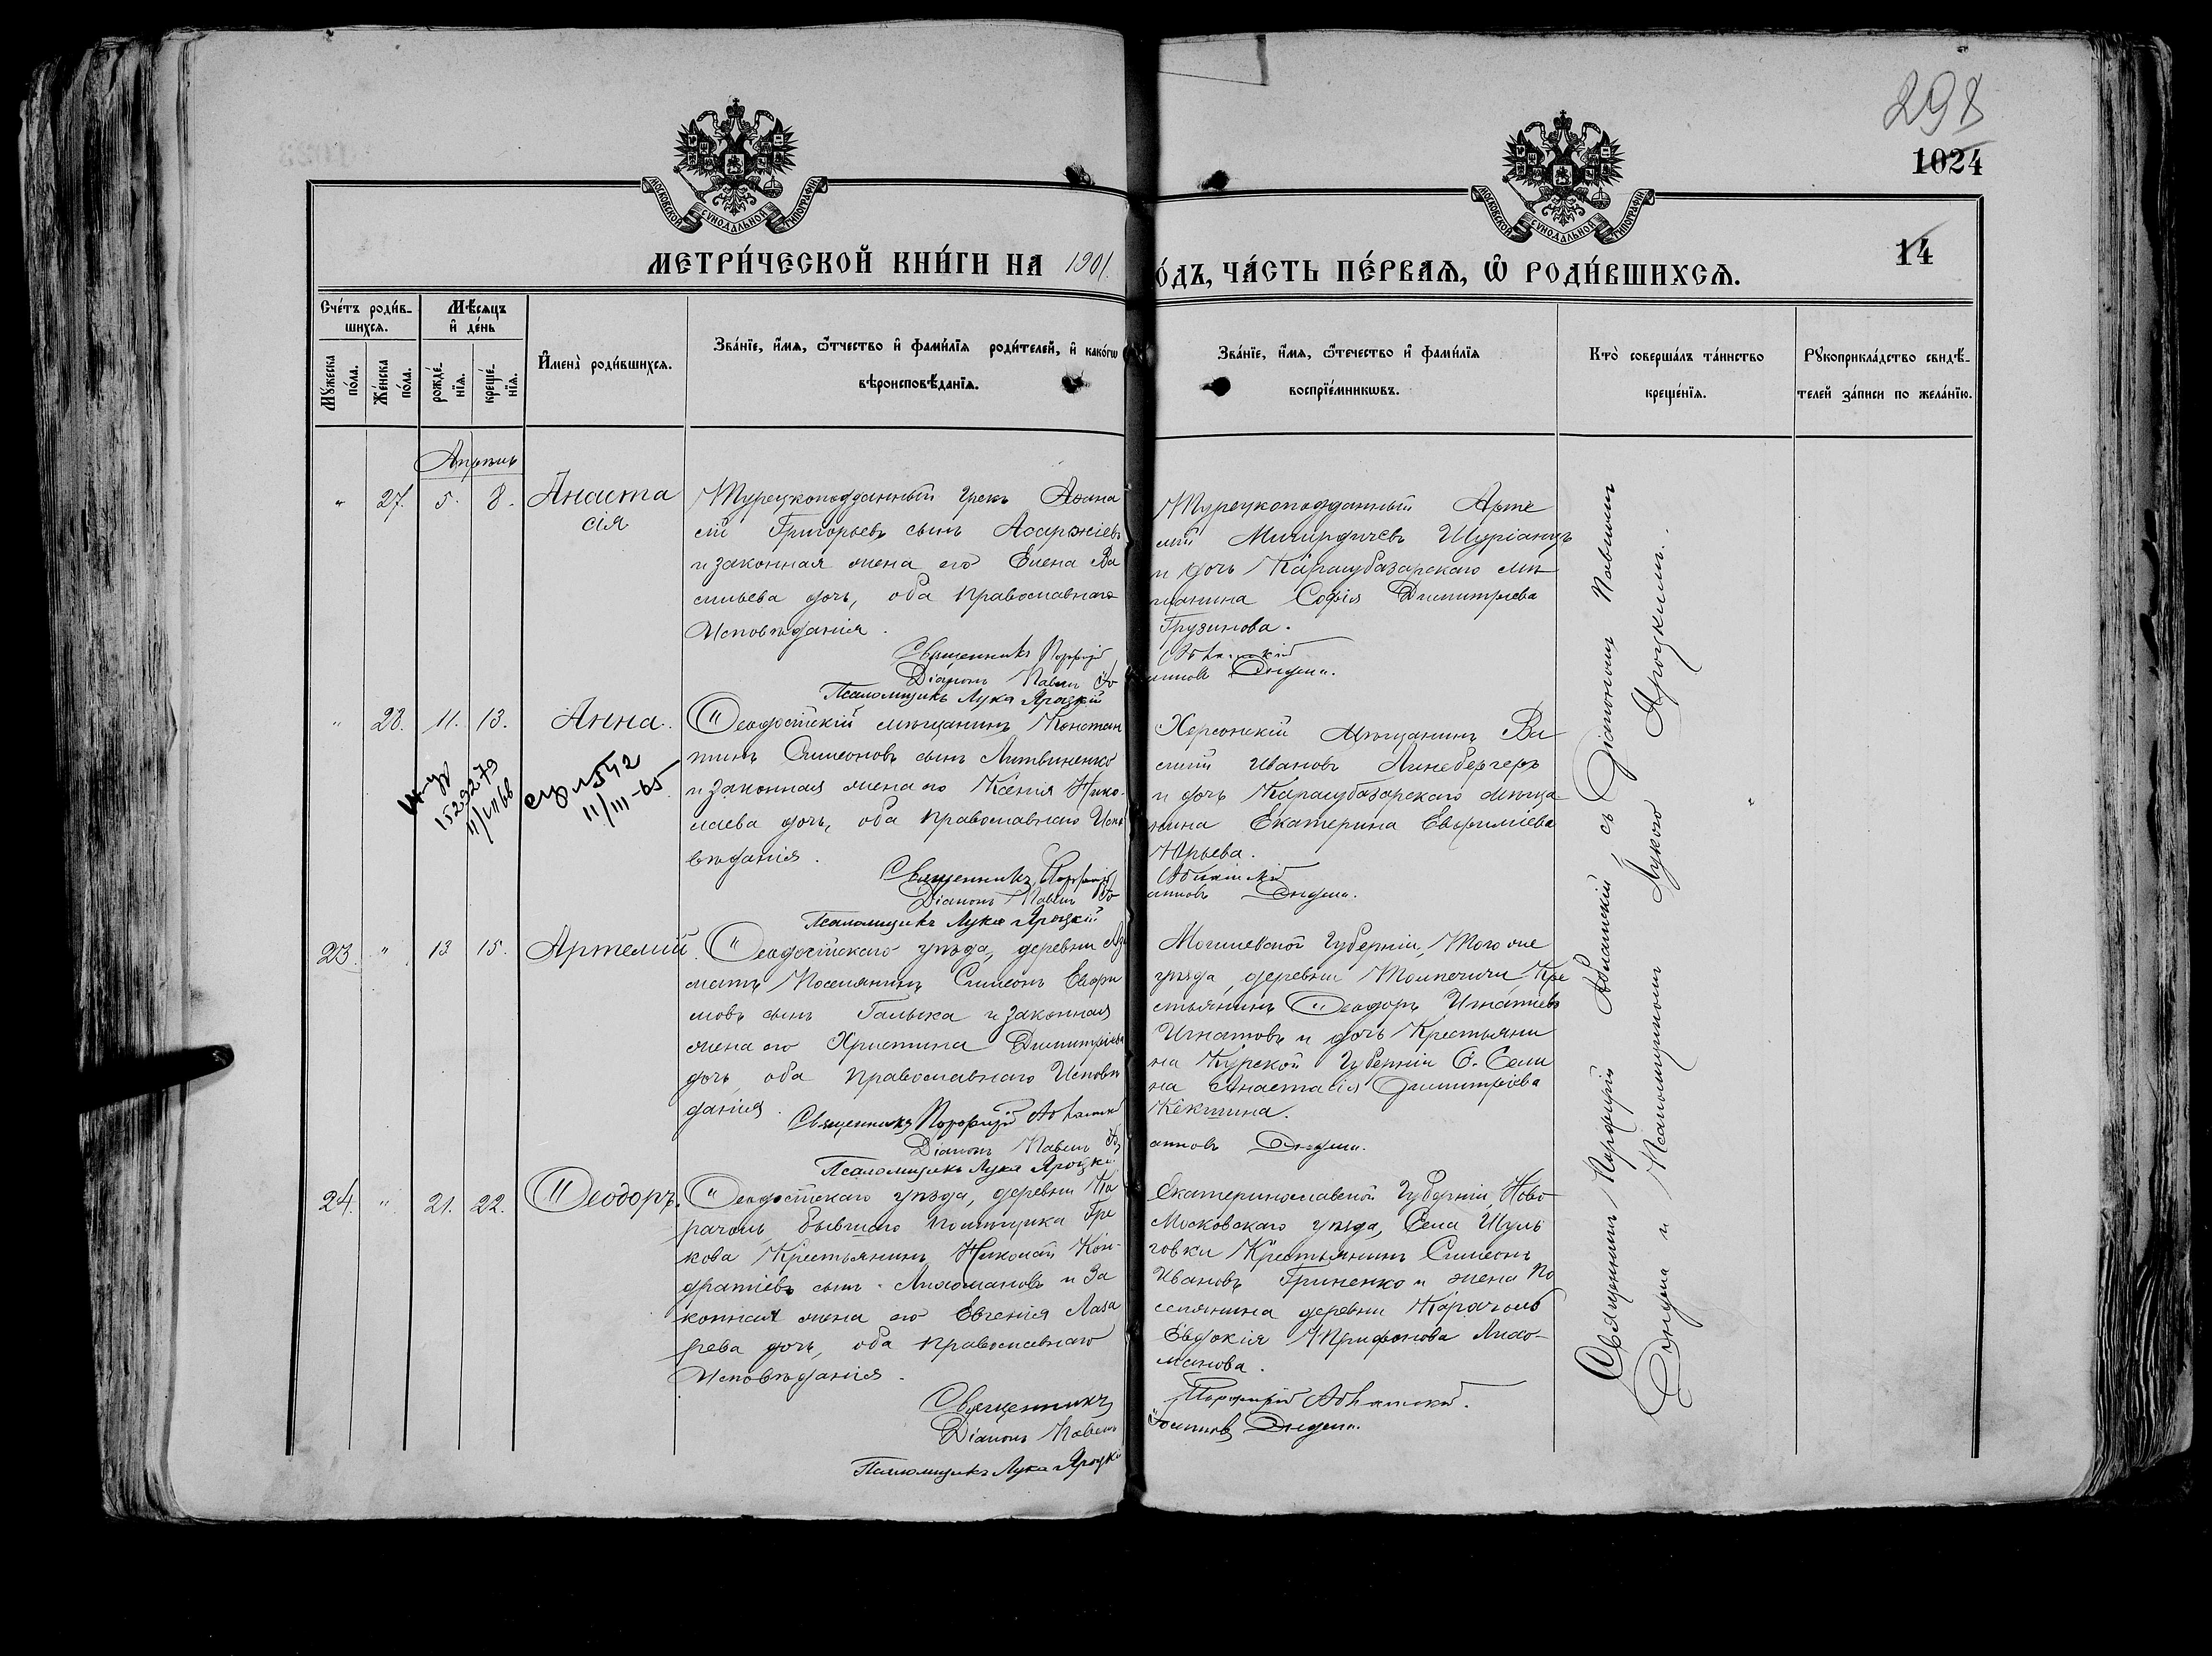 298
1024
14
МОСКОВСКОЙ СУНОДАЛЬНОЙ ТИПОГРАФІИ
МОСКОВСКОЙ СУНОДАЛЬНОЙ ТИПОГРАФІИ
МЕТРИ́ЧЕСКОЙ КНИ́ГИ НА 1901.
О́ДЪ, ЧА́СТЬ ПЕ́РВАѦ, Ѿ РОДИ́ВШИХСѦ.
Сче́тъ роди́в-
шихсѧ.
Мꙋ́жеска по́ла.
Же́нска по́ла.
Мѣ́сѧцъ
и҆ де́нь
рожде́-
нїѧ.
креще́-
нїѧ.
И҆мена̀ роди́вшихсѧ.
Зва́нїе, и҆́мѧ, ѻ҆́тчество и҆ фами́лїѧ роди́телей, и҆ како́гѡ
вѣроисповѣ́данїѧ.
Зва́нїе, и҆́мѧ, ѻ҆́течество и҆ фами́лїѧ
воспрїе́мникѡвъ.
Кто̀ соверша́лъ та́инство
креще́нїѧ.
Рꙋкоприкла́дство свидѣ́-
телей за́писи по жела́нїю.
Апрѣль
" 27. 5. 8. Анаста
сія
Турецкоподданный грекъ Аѳана
сій Григорьевъ сынъ
и законная жена его Елена Ва
сильева дочь, оба Православнаго
Исповѣданія.
Священникъ Порфирій
Діаконъ Павелъ
Псаломщикъ Лука Яроцкій
Турецкоподданный Арте
мій
и дочь Карасубазарскаго мѣ
щанина Софія Димитріева
Грузинова.
" 28. 11. 13. Анна.
1529279
11/III-65
Ѳеодосійскій мѣщанинъ Констан
тинъ Симеоновъ сынъ Литвиненко
и законная жена его Ксенія Нико-
лаева дочь, оба Православнаго Испо
вѣданія.
Священникъ Порфирій
Діаконъ Павелъ
Псаломщикъ Лука Яроцкій
Херсонскій мѣщанинъ Ва
силій Ивановъ Линебергеръ
и дочь Карасубазарскаго мѣща
нина Екатерина Евфиміева
Юрьева.
23. " 13 15. Артемій
Ѳеодосійскаго уѣзда, деревни
Поселянинъ Симеонъ Евфи
мовъ сынъ Галыка и законная
жена его Христина Димитріева
дочь, оба Православнаго Исповѣ
данія.
Священникъ Порфирій
Діаконъ Павелъ
Псаломщикъ Лука Яроцкій
Могилевской Губерніи, Того же
уѣзда, деревни Кре
стьянинъ Ѳеодоръ Игнатіевъ
Игнатовъ и дочь Крестьяни
на Курской Губерніи С.
на Анастасія Димитріева
24. " 21. 22. Ѳеодоръ.
Ѳеодосійскаго уѣзда, деревни Ка
рачоль, бывшаго помѣщика Гре
кова Крестьянинъ Николай Кон-
дратіевъ сынъ Лихомановъ и За
конная жена его Евгенія Лаза
рева дочь, оба Православнаго
Исповѣданія.
Священникъ
Діаконъ Павелъ
Псаломщикъ Лука Яроцкій
Екатеринославской Губерніи, Ново-
Московскаго уѣзда, Села Шуль
говки Крестьянинъ Симеонъ
Ивановъ Гриненко и жена По
селянина деревни Карачоль
Евдокія Трифонова Лихо-
манова.
Порфирій
Священникъ Порфирій съ Діакономъ Павломъ
и Псаломщикомъ Лукою Яроцкимъ.